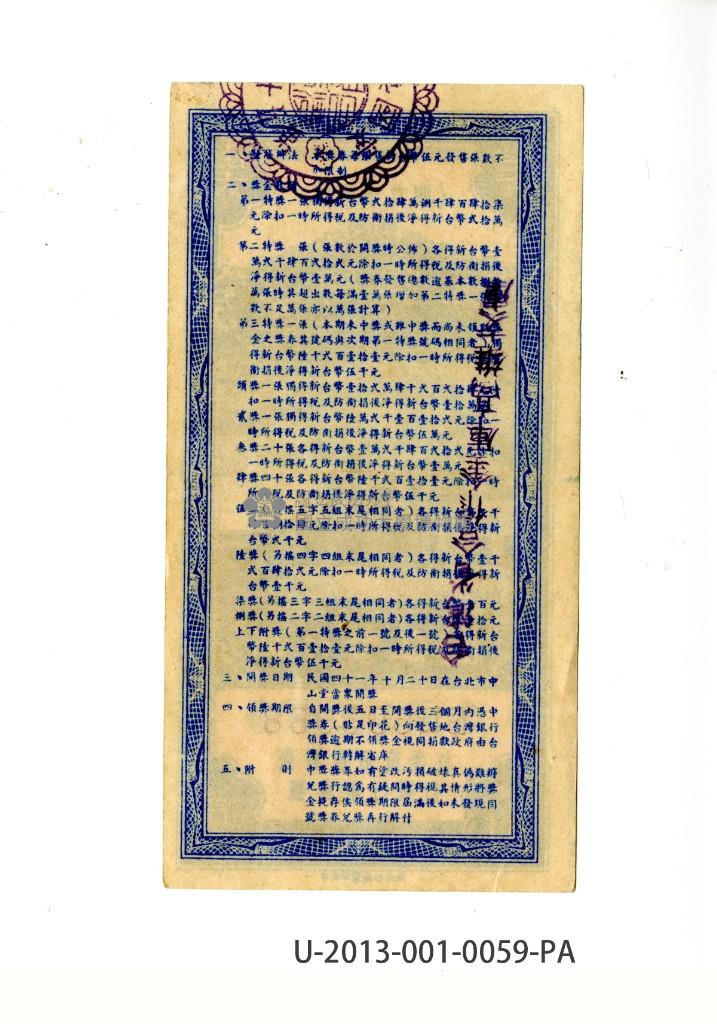 一、發售辦法　本獎券每張售新台幣伍元發售張數不
加限制
二、獎金
第一特獎一張獨得新台幣弍拾肆萬捌千肆百肆拾柒
元除扣一時所得稅及防衛捐後淨得新台幣弍拾萬
元
第二特獎　張(張數於開獎時公佈)各得新台幣壹
萬弍千肆百弍拾弍元除扣一時所得稅及防衛捐後
淨得新台幣壹萬元(獎券發售總數逾基本數
萬張時其超出數每滿壹萬張增加第二特獎一
數不足萬張亦以萬張計算)
第三特獎一張(本期未中獎或雖中獎而尚未領
金之獎券其號碼與次期第一特獎號碼相同者
得新台幣陸千弍百壹拾壹元除扣一時所得稅
衛捐後淨得新台幣伍千元
頭獎一張獨得新台幣壹拾弍萬肆千弍百弍拾
扣一時所得稅及防衛捐後淨得新台幣壹拾萬
貳獎一張獨得新台幣陸萬弍千壹百壹拾弍元除扣一
時所得稅及防衛捐後淨得新台幣伍萬元
叁獎二十張各得新台幣壹萬弍千肆百弍拾弍元除扣
一時所得稅及防衛捐後淨得新台幣壹萬元
肆獎四十張各得新台幣陸千弍百壹拾壹元除扣一時
所得稅及防衛捐後淨得新台幣伍千元
伍獎(另搖五字五組末尾相同者)各得新台幣弍千
拾元除扣一時所得稅及防衛捐後淨得新
台幣弍千元
陸獎(另搖四字四組末尾相同者)各得新台幣壹千
弍百肆拾弍元除扣一時所得稅及防衛捐後淨得新
台幣壹千元
柒獎(另搖三字三組末尾相同者)各得新台幣百元
捌獎(另搖二字二組末尾相同者)各得新台幣拾元
上下附獎(第一特獎之前一號及後一號)各得新台
幣陸千弍百壹拾壹元除扣一時所得稅及防衛捐後
淨得新台幣伍千元
三、開獎日期　民國四十一年十月二十日在台北市中
山堂當眾開獎
四、領獎期限　自開獎後五日至開獎後三個月內憑中
獎券(貼足印花)向發售地台灣銀行
領獎逾期不領獎金視同捐獻政府由台
灣銀行轉解省庫
五、附　則　中獎獎券如有塗改污損破壞真偽難辨
兌獎行認為有疑問時得視其情形將獎
金提存俟領獎期限屆滿後如未發現同
號獎券兌獎再行解付
U-2013-001-0059-PA